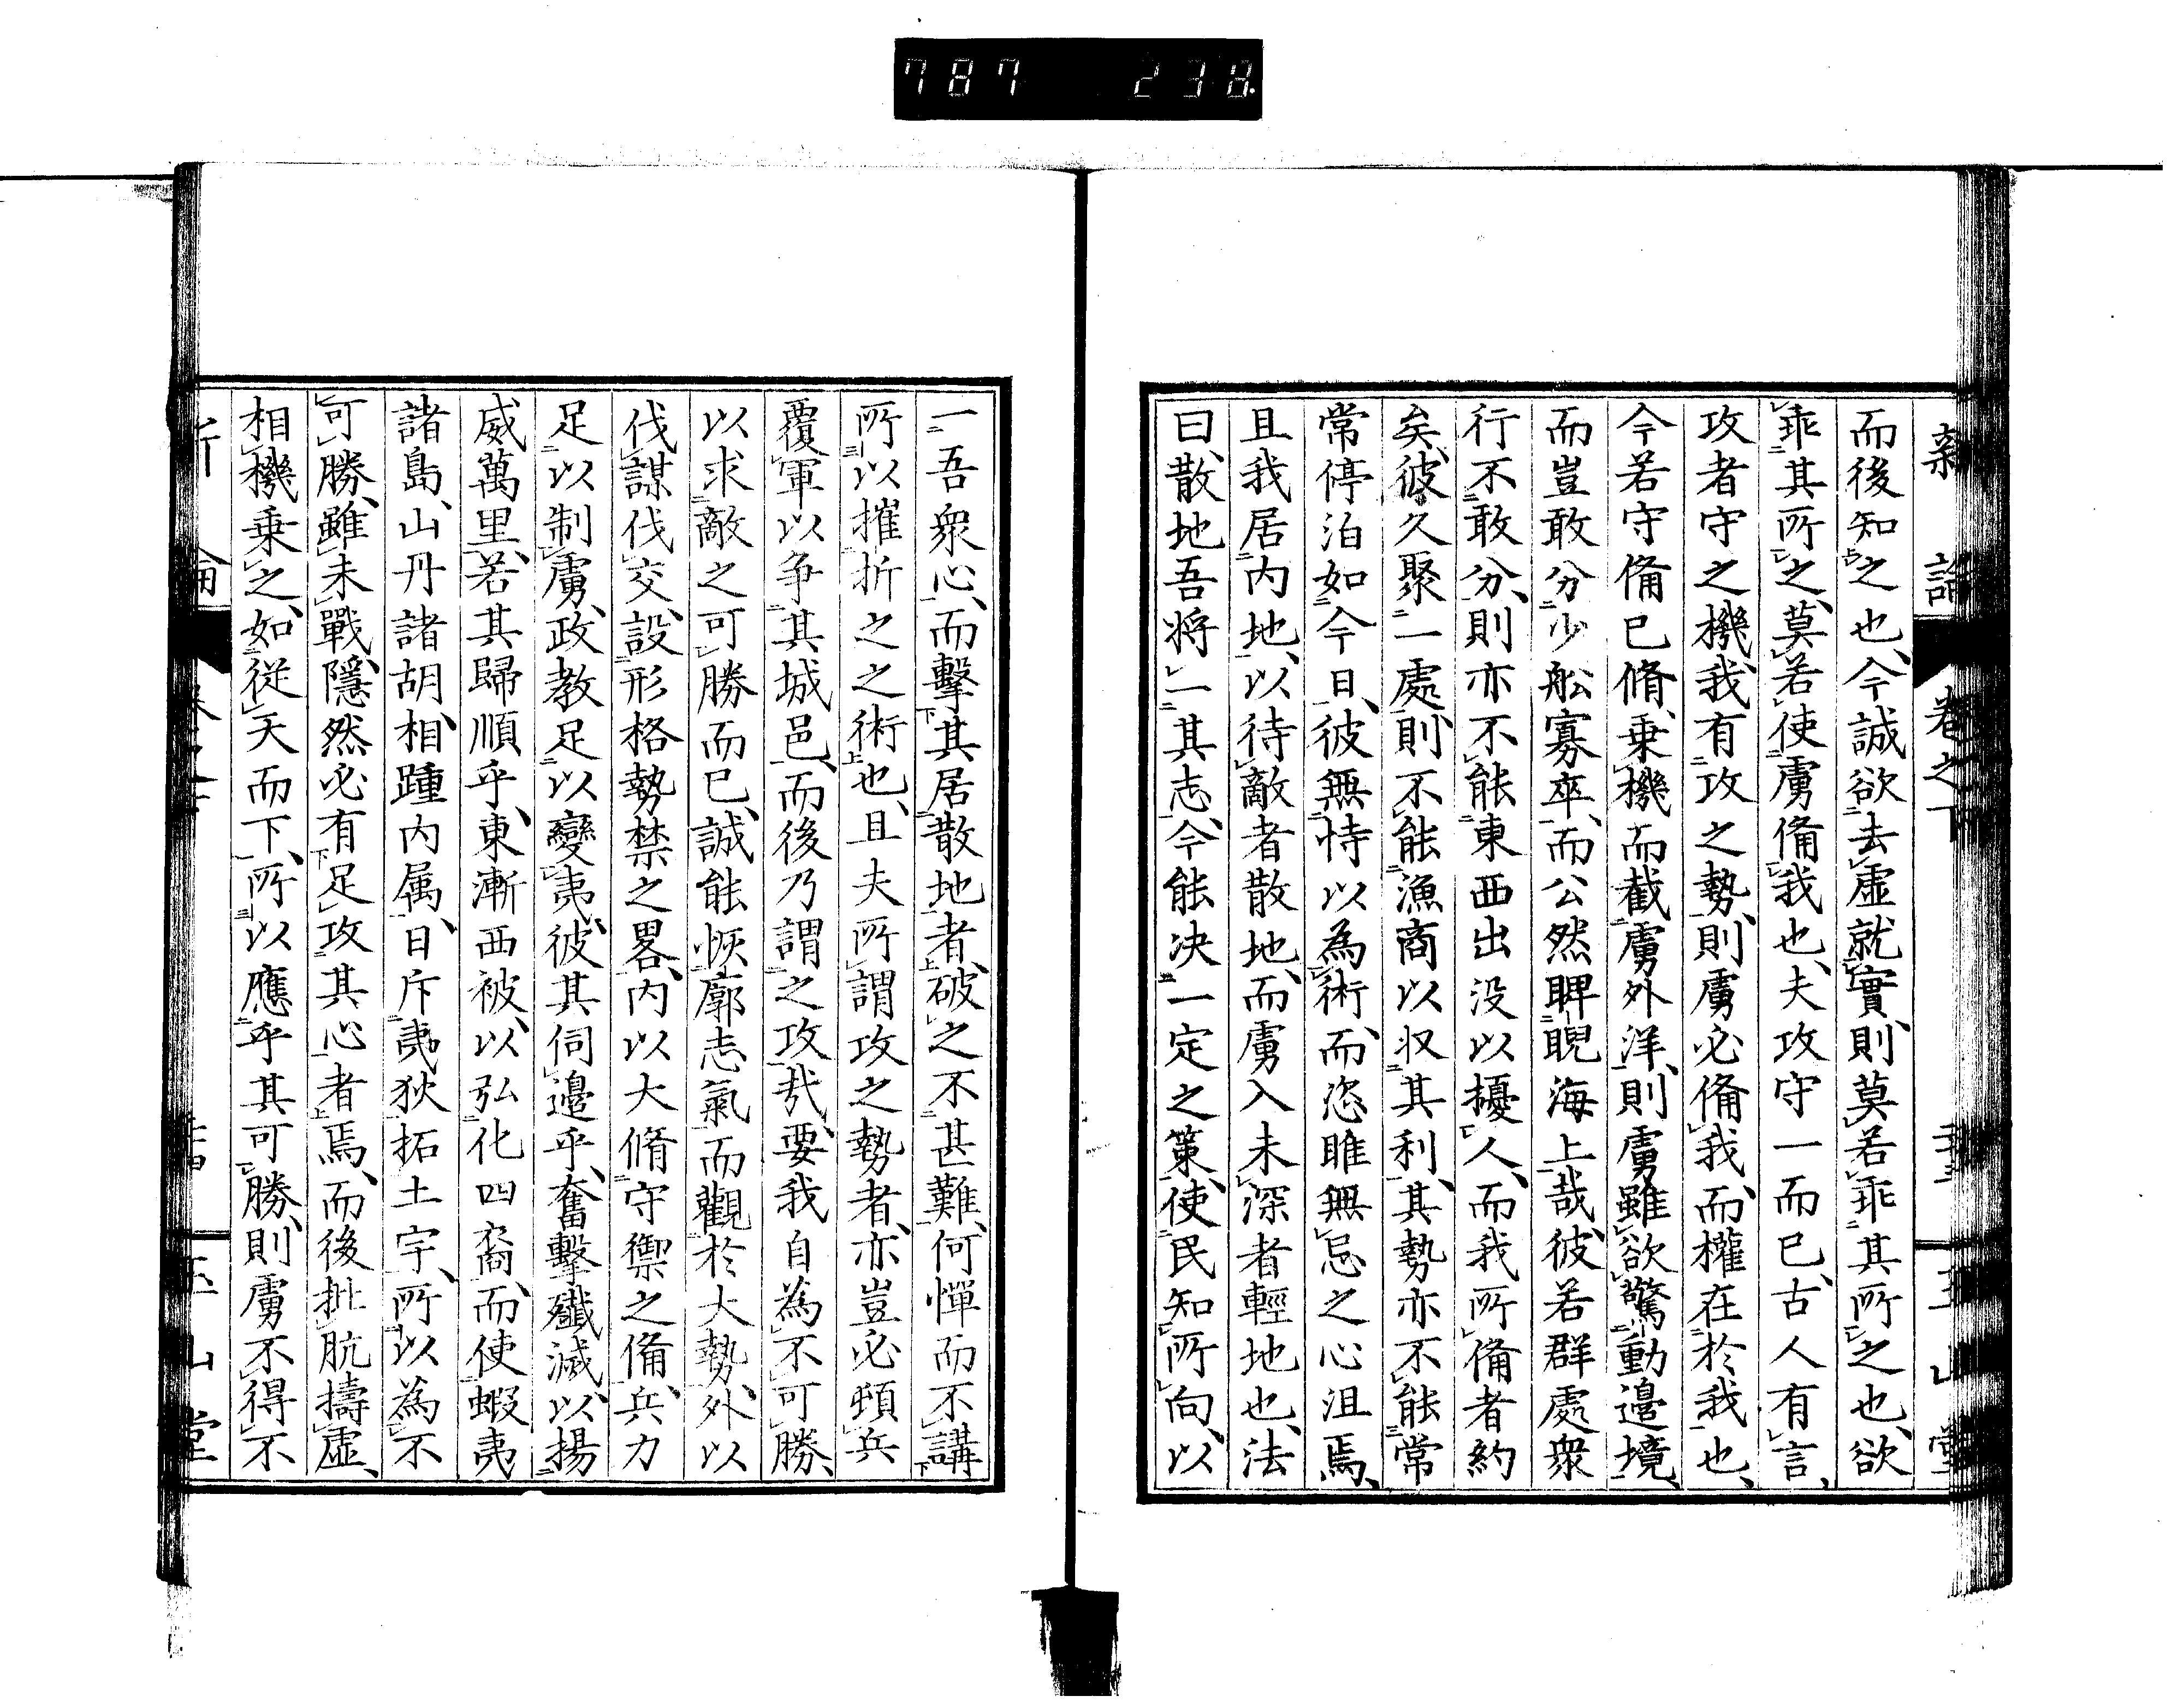 787 238
新論 卷之下
而後知之也、今誠欲去虛就實、則莫若乖其所之也、欲
乖其所之、莫若使虜備我也、夫攻守一而已、古人有言、
攻者守之機、我有攻之勢、則虜必備我、而權在於我也、
今若守備已脩、乗機而截虜外洋、則虜雖欲驚動邊境、
而豈敢分少舩寡卒、而公然睥睨海上哉、彼若群處衆
行不敢分、則亦不能東西出没以擾人、而我所備者約
矣、彼久聚一處、則不能漁商以収其利、其勢亦不能常
常停泊如今日、彼無恃以為術、而恣睢無忌之心沮焉、
且我居内地、以待敵者散地、而虜入未深者輕地也、法
曰、散地吾将一其志、今能决一定之策、使民知所向、以
一吾衆心、而擊其居散地者、破之不甚難、何憚而不講
所以摧折之之術也、且夫所謂攻之勢者、亦豈必頓兵
覆軍以争其城邑、而後乃謂之攻哉、要我自為不可勝、
以求敵之可勝而已、誠能恢廓志氣而觀於大勢、外以
伐謀伐交、設形格勢禁之畧、内以大脩守禦之備、兵力
足以制虜、政教足以變夷、彼其伺邊乎、奮擊殱滅、以揚
威萬里、若其歸順乎、東漸西被、以弘化四裔、而使蝦夷
諸島、山丹諸胡、相踵内属、日斥夷狄、拓土宇、所以為不
可勝、雖未戰、隱然必有足攻其心者焉、而後批肮擣虛、
相機乗之、如従天而下、所以應乎其可勝、則虜不得不
玉山堂